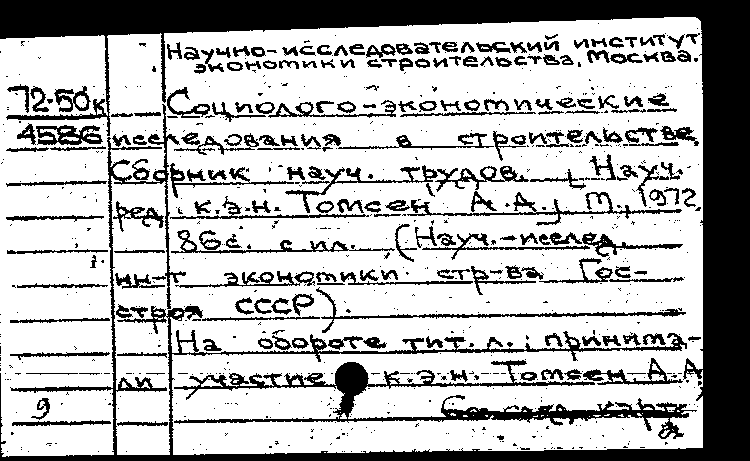 Научно-исследовательский институт
экономики строительства, Москва.
72-50к Социолого-экономические
4586 исследования в строительстве.
Сборник науч. трудов. [Науч.
ред. к.э.н. Томсен А.А.] М., 1972.
86с. с ил. (Науч.-исслед.
ин-т экономики стр-ва Гос-
строя СССР).
На обороте тит. л.: принима-
ли участие к.э.н. Томсен А.А.
9 См. след. карт.